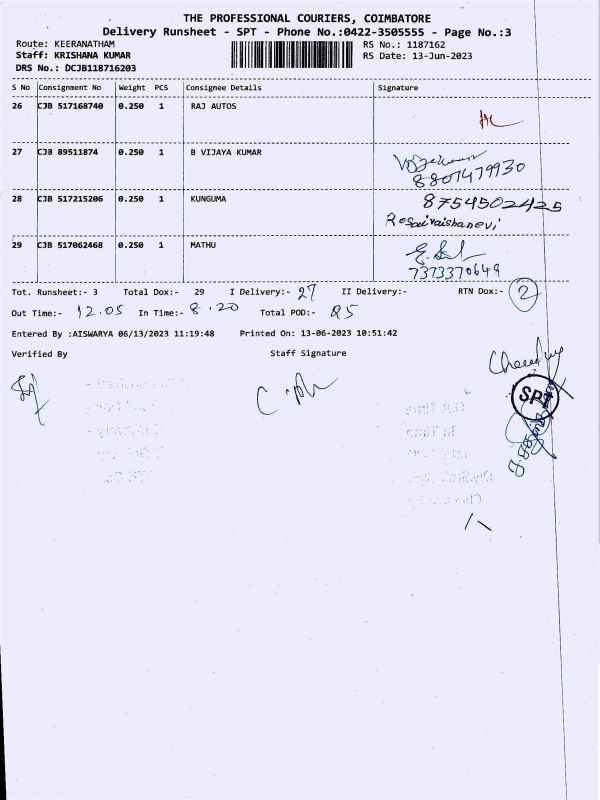 THE PROFESSIONAL COURIERS, COIMBATORE
Delivery Runsheet - SPT - Phone No.:0422-3505555 - Page No.:3
Route: KEERANATHAM RS No.: 1187162
Staff: KRISHANA KUMAR RS Date: 13-Jun-2023
DRS No.: DCJB118716203
S No Consignment No Weight PCS Consignee Details Signature
26 CJB 517168740 0.250 1 RAJ AUTOS
27 CJB 89511874 0.250 1 B VIJAYA KUMAR
8807479930
28 CJB 517215206 0.250 1 KUNGUMA 8754502425
29 CJB 517062468 0.250 1 MATHU
7373370649
Tot. Runsheet:- 3 Total Dox:- 29 I Delivery:- 27 II Delivery:- RTN Dox:- 2
Out Time:- 12.05 In Time:- 8.20 Total POD:- 25
Entered By :AISWARYA 06/13/2023 11:19:48 Printed On: 13-06-2023 10:51:42
Verified By Staff Signature
SPT